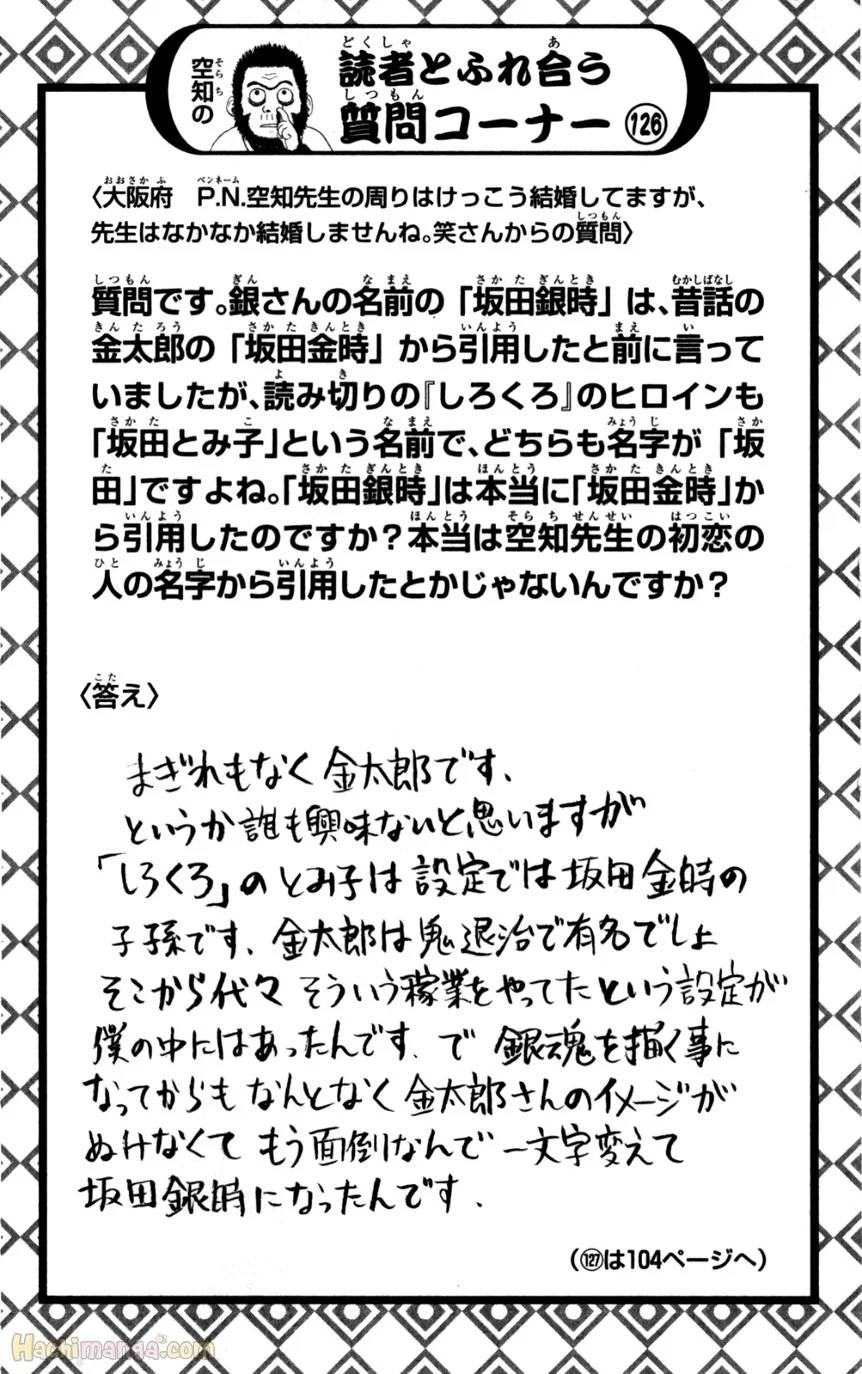 空知の
読者とふれ合う
質問コーナー 126
〈大阪府　P.N.空知先生の周りはけっこう結婚してますが、
先生はなかなか結婚しませんね。笑さんからの質問〉
質問です。銀さんの名前の「坂田銀時」は、昔話の
金太郎の「坂田金時」から引用したと前に言って
いましたが、読み切りの『しろくろ』のヒロインも
「坂田とみ子」という名前で、どちらも名字が「坂
田」ですよね。「坂田銀時」は本当に「坂田金時」か
ら引用したのですか？本当は空知先生の初恋の
人の名字から引用したとかじゃないんですか？
〈答え〉
まぎれもなく金太郎です、
というか誰も興味ないと思いますが
「しろくろ」のとみ子は設定では坂田金時の
子孫です、金太郎は鬼退治で有名でしょ
そこから代々そういう稼業をやってたという設定が
僕の中にはあったんです、で 銀魂を描く事に
なってからもなんとなく金太郎さんのイメージが
ぬけなくてもう面倒なんで一文字変えて
坂田銀時になったんです、
（127は104ページへ）
Hachimanga.com